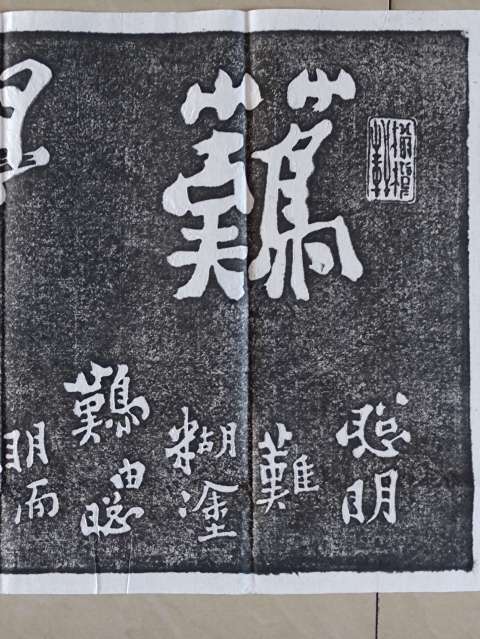 難
聰明
難
糊塗
難由聰
明而